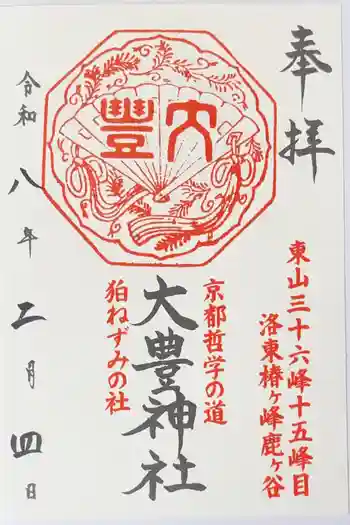 奉拝
東山三十六峰十五峰目
洛東椿ヶ峰鹿ヶ谷
大豐
京都哲学の道
大豊神社
狛ねずみの社
令和八年二月四日